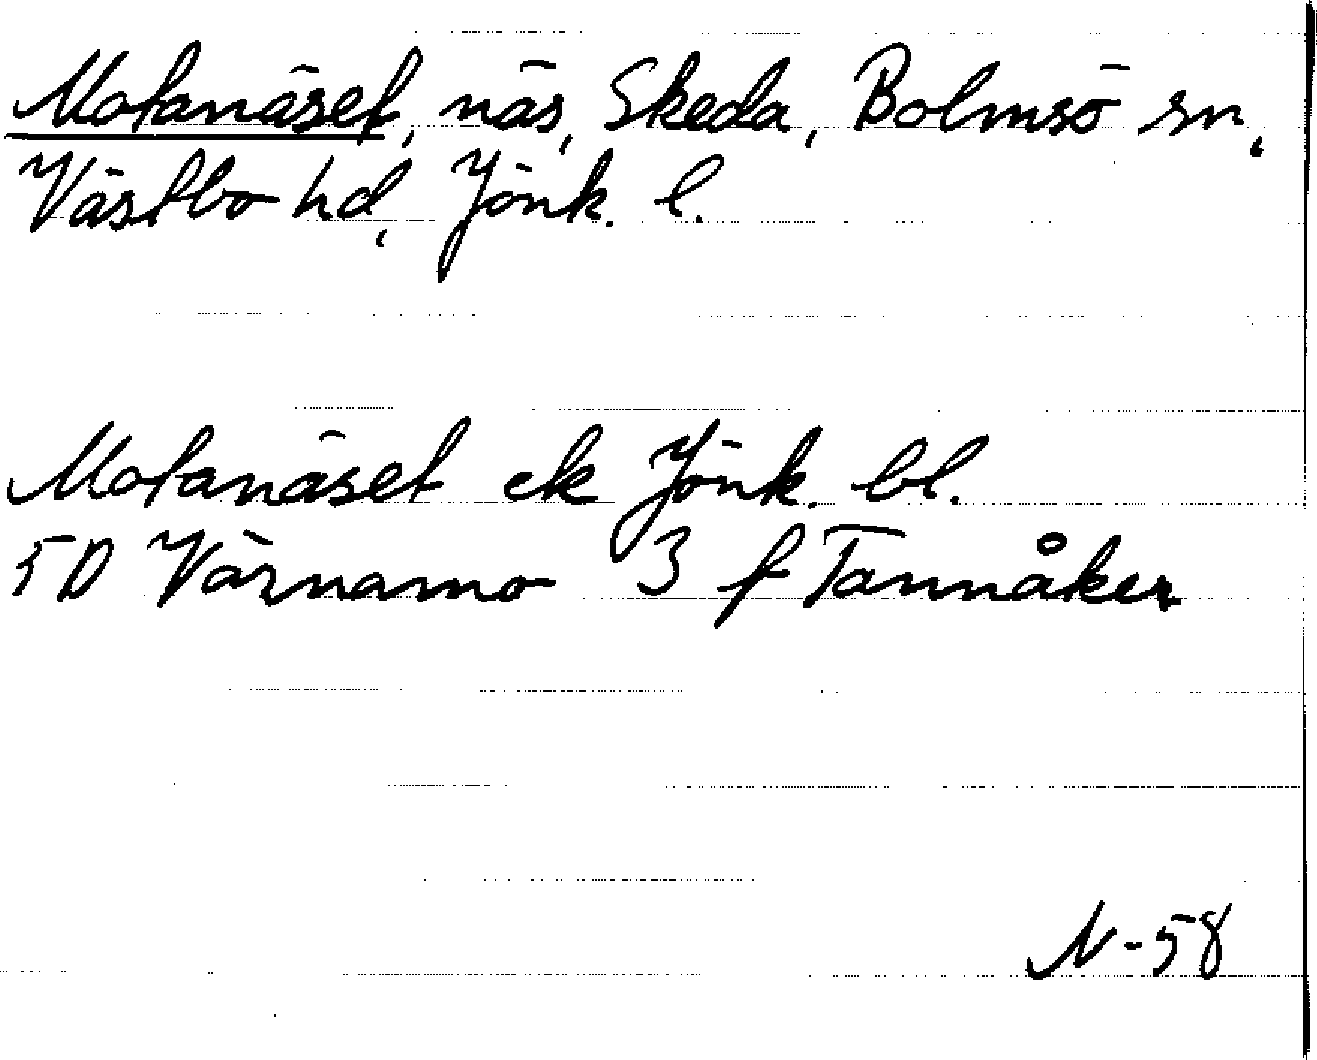 Motanäset, näs, Skeda, Bolmsö sn,
Västbo hd, Jönk. l.
Motanäset ek Jönk. bl.
5D Värnamo 3 f Tannåker
N-58